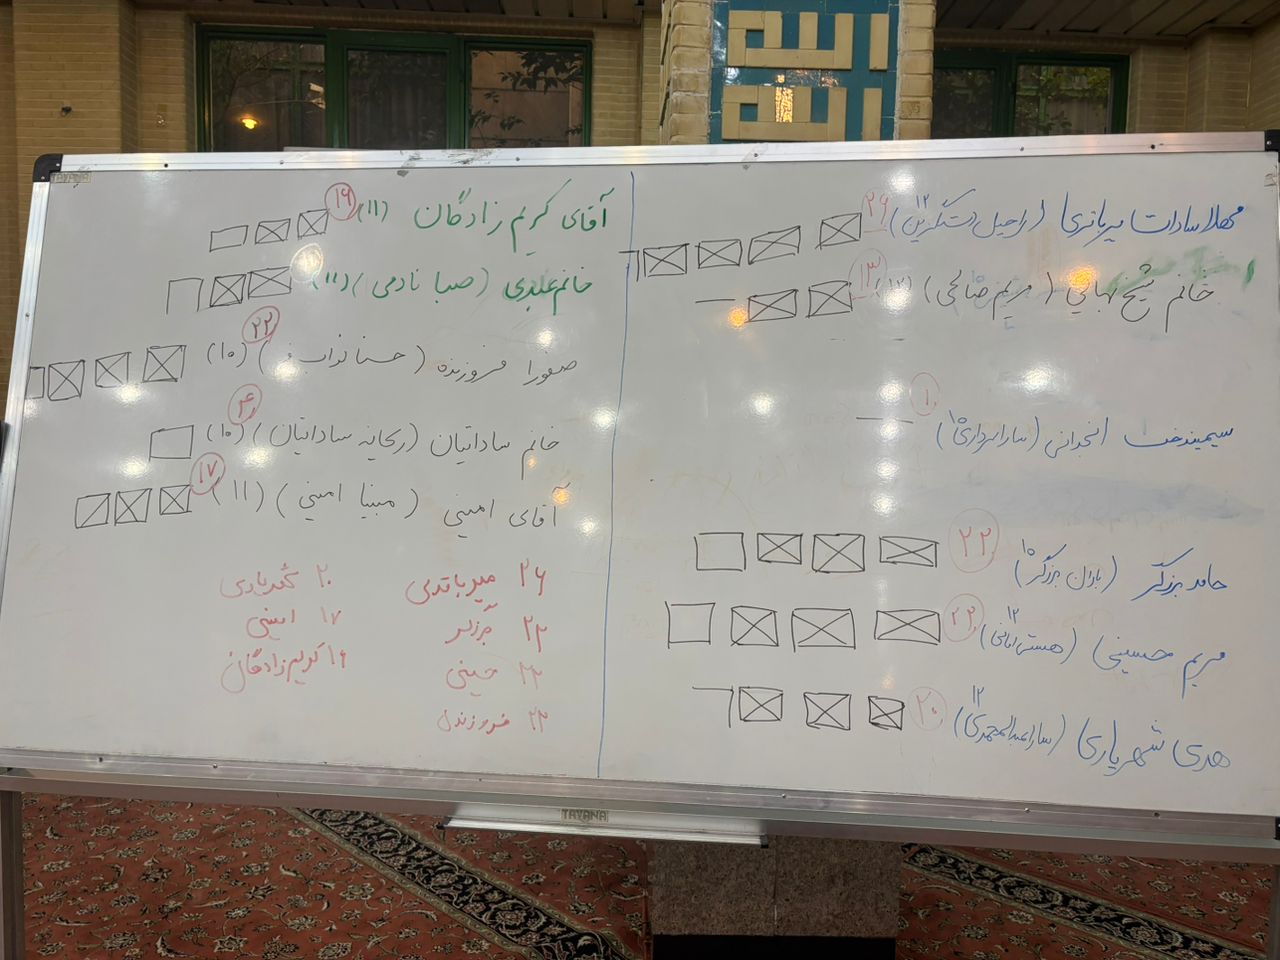 TAVANA
مهلا سادات میرباقری (راحیل دستگزین) ۱۲ ۲۶
خانم شیخ بهایی (مریم صالحی) (۱۲) ۱۳
سیمیندخت انجرانی (سارا سرداری) ۱۰ ۱
حامد برزگر (باران برزگر) ۱۰ ۲۲
مریم حسینی (هستی امانی) ۱۲ ۲۲
هدی شهریاری (سارا عبدالمحمدی) ۱۲ ۲۰
آقای کریم زادگان (۱۱) ۱۶
خانم عابدی (صبا نادمی) (۱۱)
صفورا فروزنده (حسنا نواب) (۱۰) ۲۲
خانم ساداتیان (ریحانه ساداتیان) (۱۰) ۴
آقای امینی (مبینا امینی) (۱۱) ۱۷
۲۶ میرباقری
۲۲ برزگر
۲۲ حسینی
۲۲ فروزنده
۲۰ شهریاری
۱۷ امینی
۱۶ کریم زادگان
TAVANA